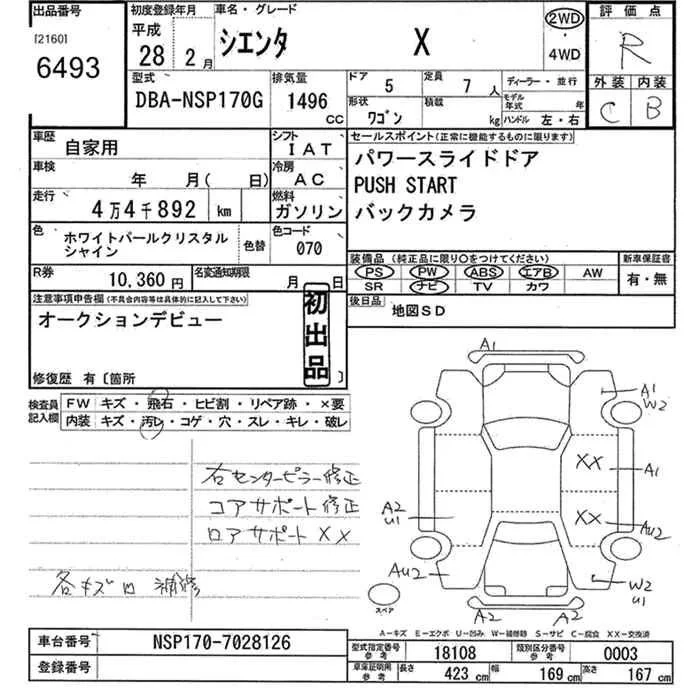 出品番号
[2160]
6493
初度登録年月
平成
28年 2月
車名・グレード
シエンタ X
2WD・4WD
評価点
R
外装 内装
C B
型式
DBA-NSP170G
排気量
1496 CC
ドア 5
定員 7人
形状 ワゴン
積載 kg
ディーラー・並行
モデル年式 年
ハンドル 左・右
車歴 自家用
シフト IAT
車検 年 月( 日)
冷房 AC
走行 4万4千892 km
燃料 ガソリン
色 ホワイトパールクリスタル
シャイン
色替
色コード 070
R券 10,360円
名変通知期限 月 日
セールスポイント(正常に機能するものに限ります)
パワースライドドア
PUSH START
バックカメラ
装備品(純正品に限り〇をつけてください)
新車保証書
PS PW ABS エアB AW
SR ナビ TV カワ
有・無
後日品 地図SD
注意事項申告欄(不具合内容等は具体的に記入して下さい)
オークションデビュー
初出品
修復歴 有〔箇所 〕
検査員記入欄
FW キズ・飛石・ヒビ割・リペア跡・×要
内装 キズ・汚レ・コゲ・穴・スレ・キレ・破レ
右センターピラー修正
コアサポート修正
ロアサポートXX
各キズ凹 補修
A1
A1
W2
XX
A1
A2
U1
XX
AU2
AU2
W2
U1
スペア
A2 A2
A-キズ E-エクボ U-凹み W-補修跡 S-サビ C-腐食 XX-交換済
車台番号 NSP170-7028126
登録番号
型式指定番号 参考 18108
類別区分番号 参考 0003
車庫証明用 参考
長さ 423 cm
幅 169 cm
高さ 167 cm